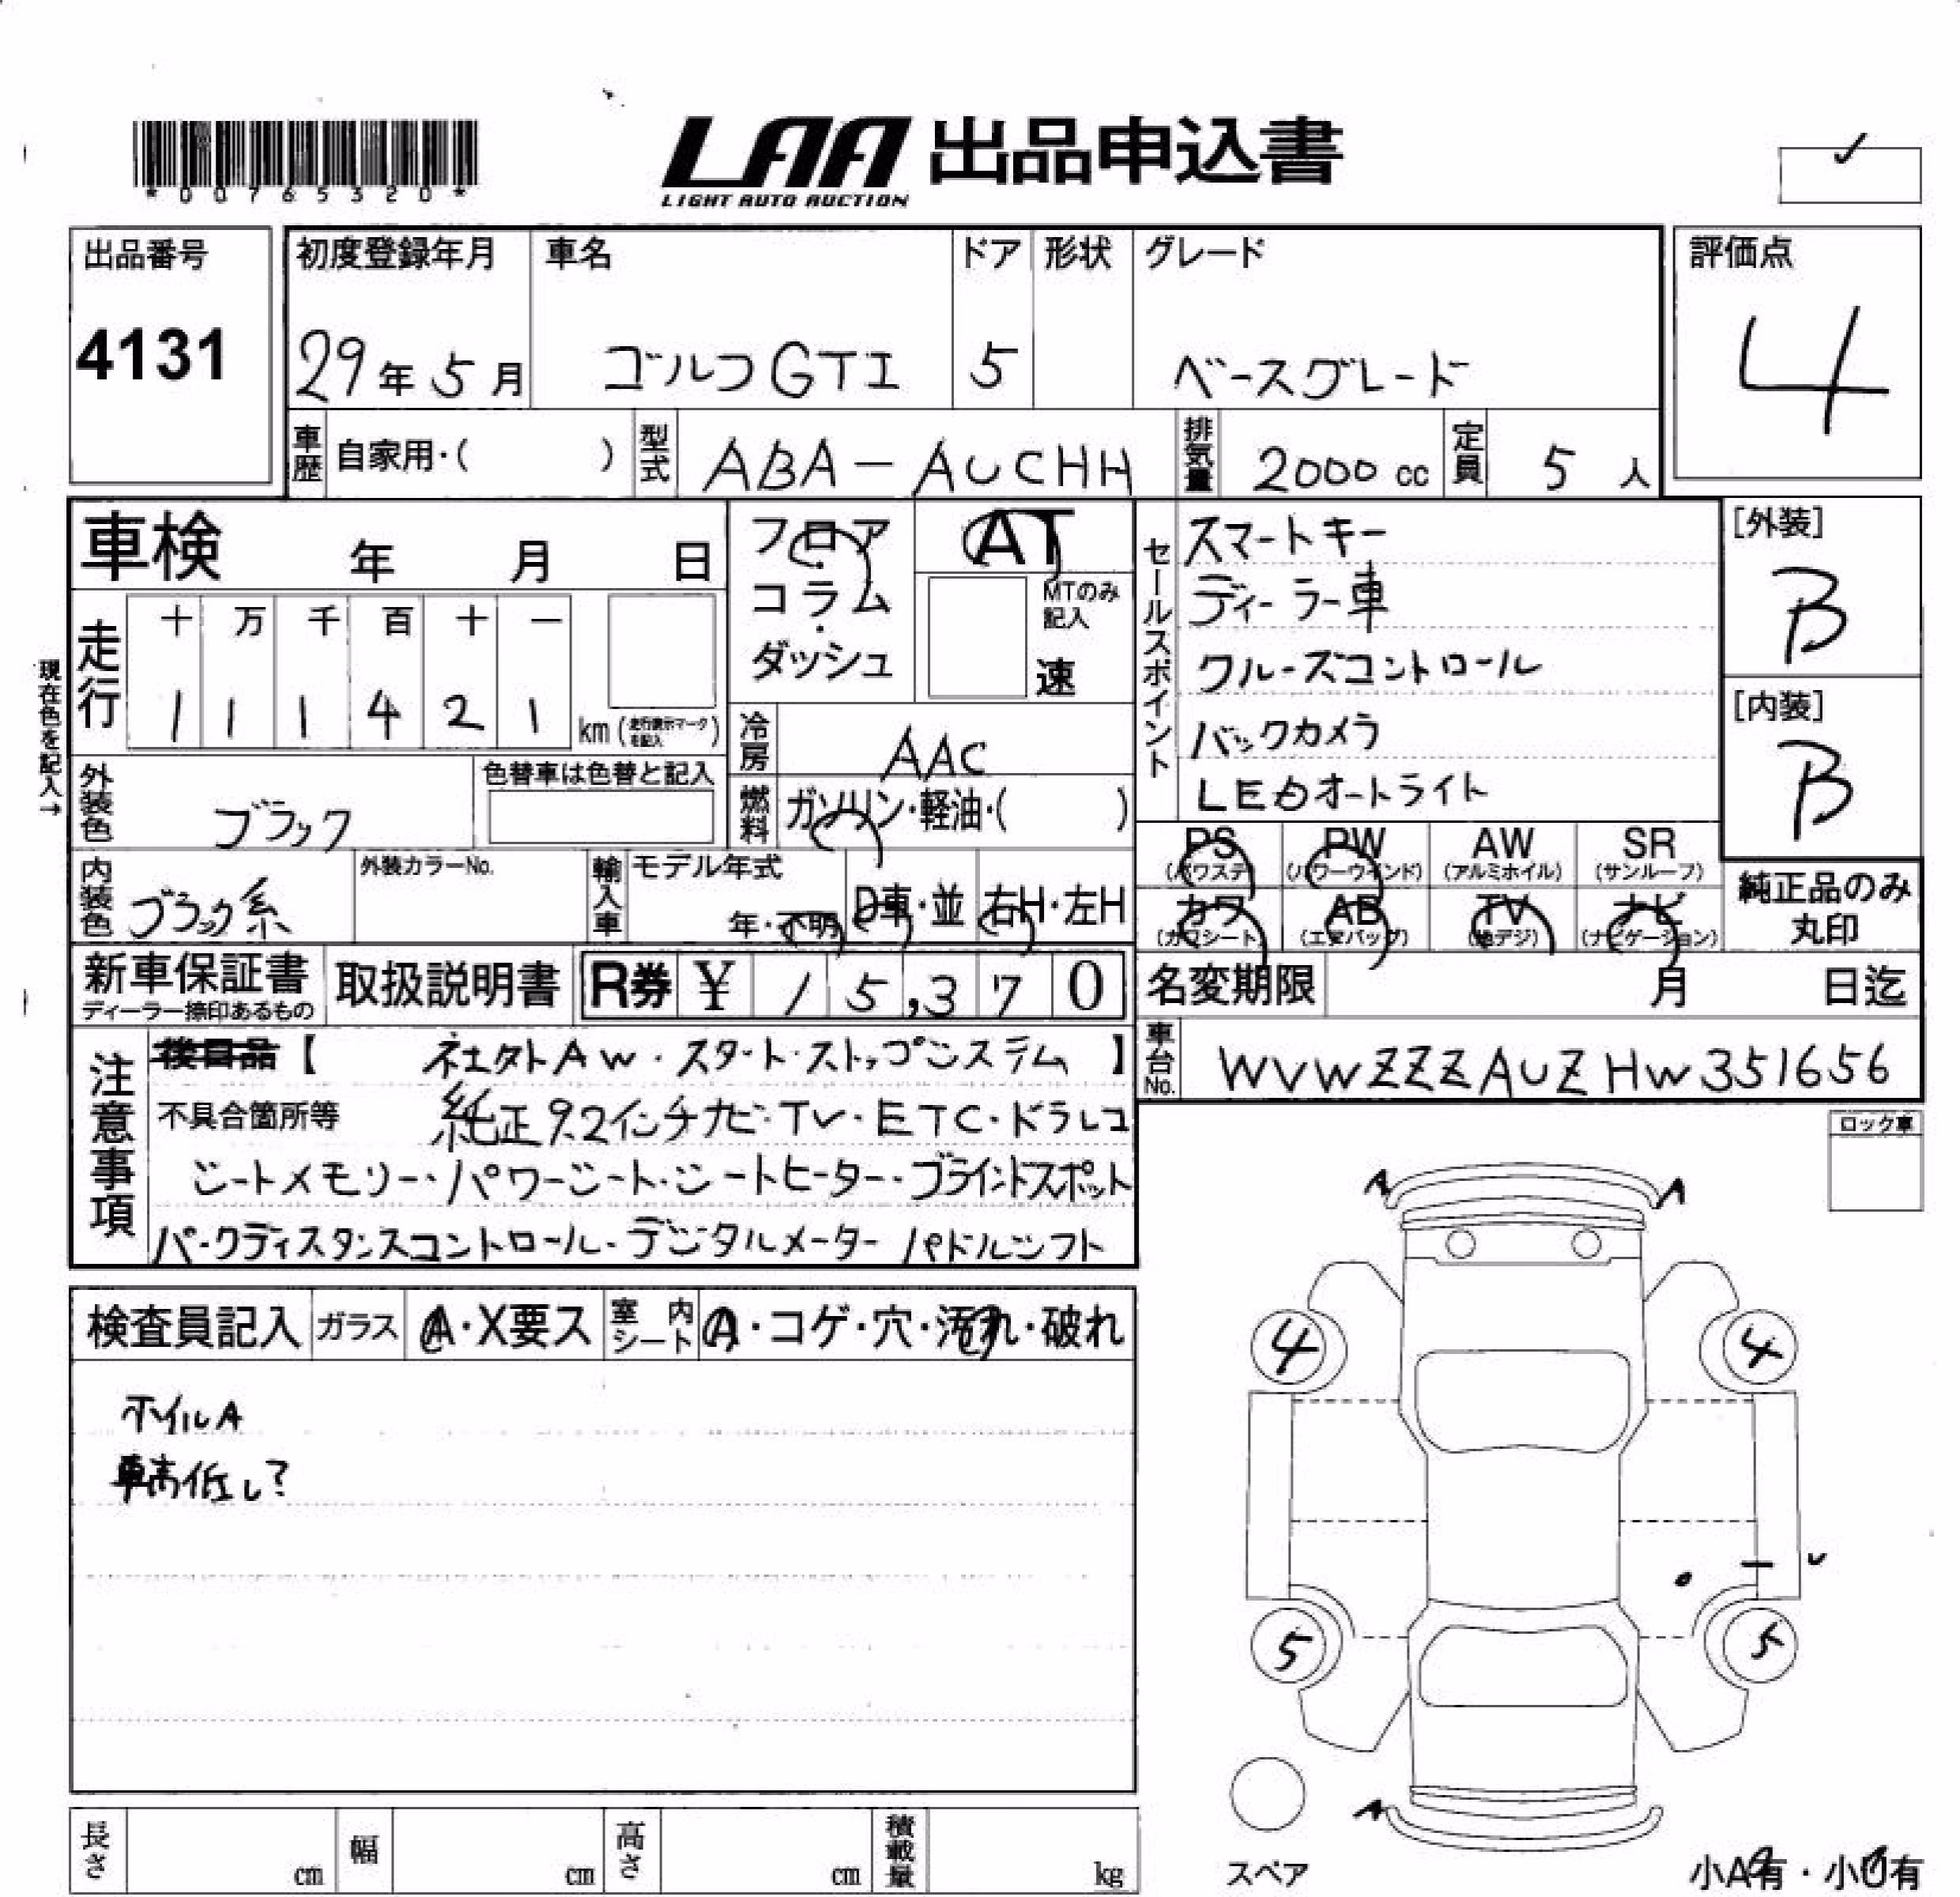 *00765320*
LAA 出品申込書
LIGHT AUTO AUCTION
出品番号
4131
初度登録年月
29年5月
車名
ゴルフGTI
ドア
5
形状
グレード
ベースグレード
評価点
4
車歴
自家用・( )
型式
ABA-AUCHH
排気量
2000 cc
定員
5 人
車検 年 月 日
フロア・コラム・ダッシュ
AT
MTのみ記入
速
走行
十 万 千 百 十 一
1 1 1 4 2 1 km (走行表示マークを記入)
現在色を記入→
外装色
ブラック
色替車は色替と記入
冷房
AAC
燃料
ガソリン・軽油・( )
内装色
ブラック系
外装カラーNo.
輸入車
モデル年式
年・不明
D車・並
右H・左H
セールスポイント
スマートキー
ディーラー車
クルーズコントロール
バックカメラ
LEDオートライト
[外装]
B
[内装]
B
PS (パワステ) PW (パワーウインド) AW (アルミホイル) SR (サンルーフ)
カワ (カワシート) AB (エアバッグ) TV (地デジ) ナビ (ナビゲーション)
純正品のみ丸印
新車保証書
ディーラー捺印あるもの
取扱説明書
R券 ¥ 15,370
名変期限 月 日迄
車台No.
WVWZZZAUZHW351656
注意事項
後日品【 社外AW・スタート・ストップシステム 】
不具合箇所等 純正9.2インチナビ・TV・ETC・ドラレコ
シートメモリー・パワーシート・シートヒーター・ブラインドスポット
パークディスタンスコントロール・デジタルメーター パドルシフト
ロック車
検査員記入
ガラス A・X要ス
室内シート A・コゲ・穴・汚れ・破れ
ホイルA
車高低し?
A A
4 4
5 5
A
スペア
小A有・小U有
長さ cm
幅 cm
高さ cm
積載量 kg